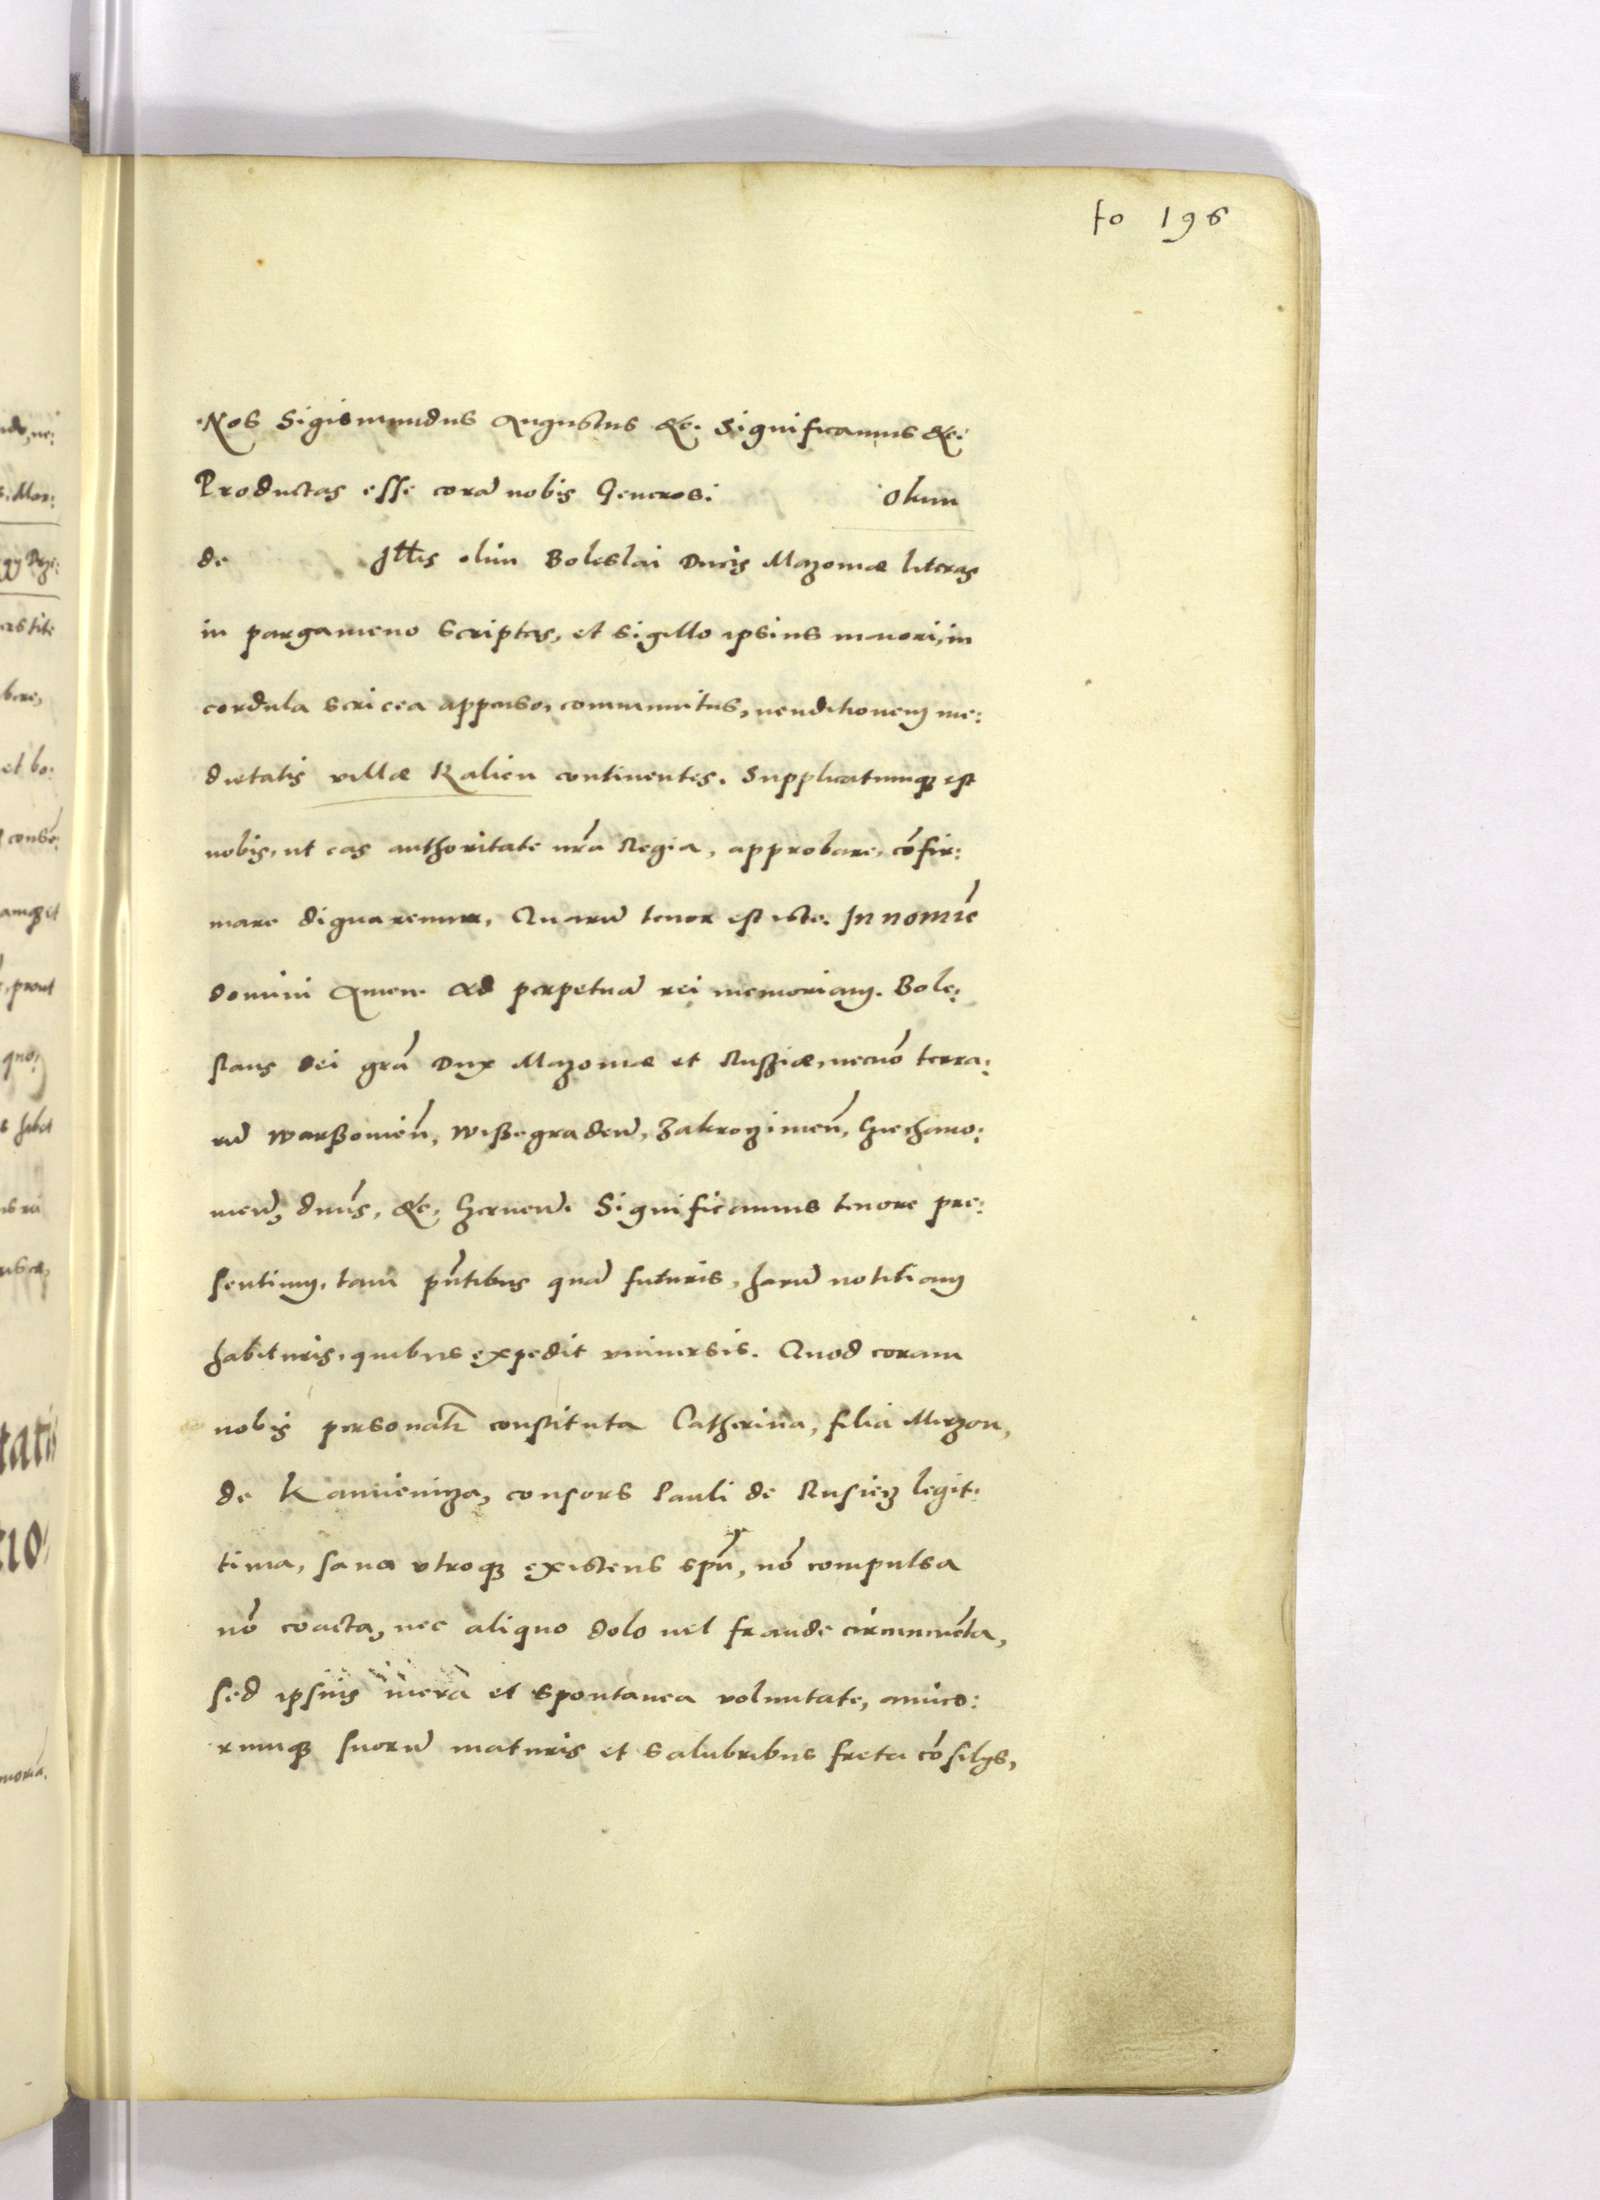 fo 196
Nos Sigismundus Augustus &c. Significamus &c.
Productas esse corã nobis Generosi Olum
de Illis olim Boleslai Ducis Mazouiæ literas
in pargameno scriptas, et sigillo ipsius maiori, in
cordula sericea appenso, communitas, uenditionem me:
dietatis villæ Kalien continentes. Supplicatumq; est
nobis, ut eas authoritate nrã Regia, approbare, cõfir:
mare dignaremur, Quarũ tenor est iste. In nomĩe
domini Amen. Ad perpetuã rei memoriam. Bole:
slaus Dei grã Dux Mazouiæ et Russiæ, necnõ terra:
rũ Warßouieñ, Wißegradeñ, Zakrozimeñ, Cziechano:
uieñ, dnũs, &c. Czerneñ. Significamus tenore pre:
sentium, tam pñtibus quã futuris, harũ notitiam
habituris, quibus expedit vniuersis. Quod coram
nobis personalr̃ constituta Catherina, filia Mirzon,
de Kamienicza, consors Pauli de Rusiecz legit:
tima, sana vtroq; existens spũ, nõ compulsa
nõ coacta, nec aliquo dolo uel fraude circumuẽta,
sed ipsius mera et spontanea voluntate, amico:
rumq; suorũ maturis et salubribus freta cõsilijs,